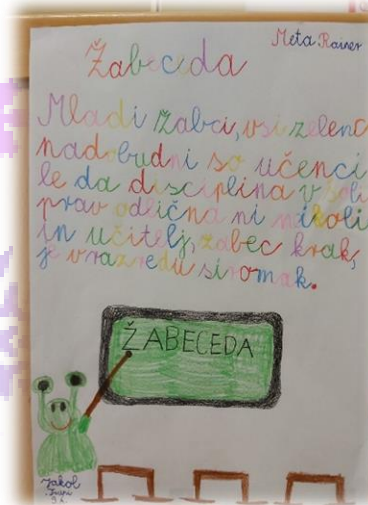 Meta Rainer
Žabeceda
Mladi žabci, vsi zelenc
nadobudni so učenci
le da disciplina v šoli
prav odlična ni nikoli
in učitelj, žabec krak,
je v razredu siromak.
ŽABECEDA